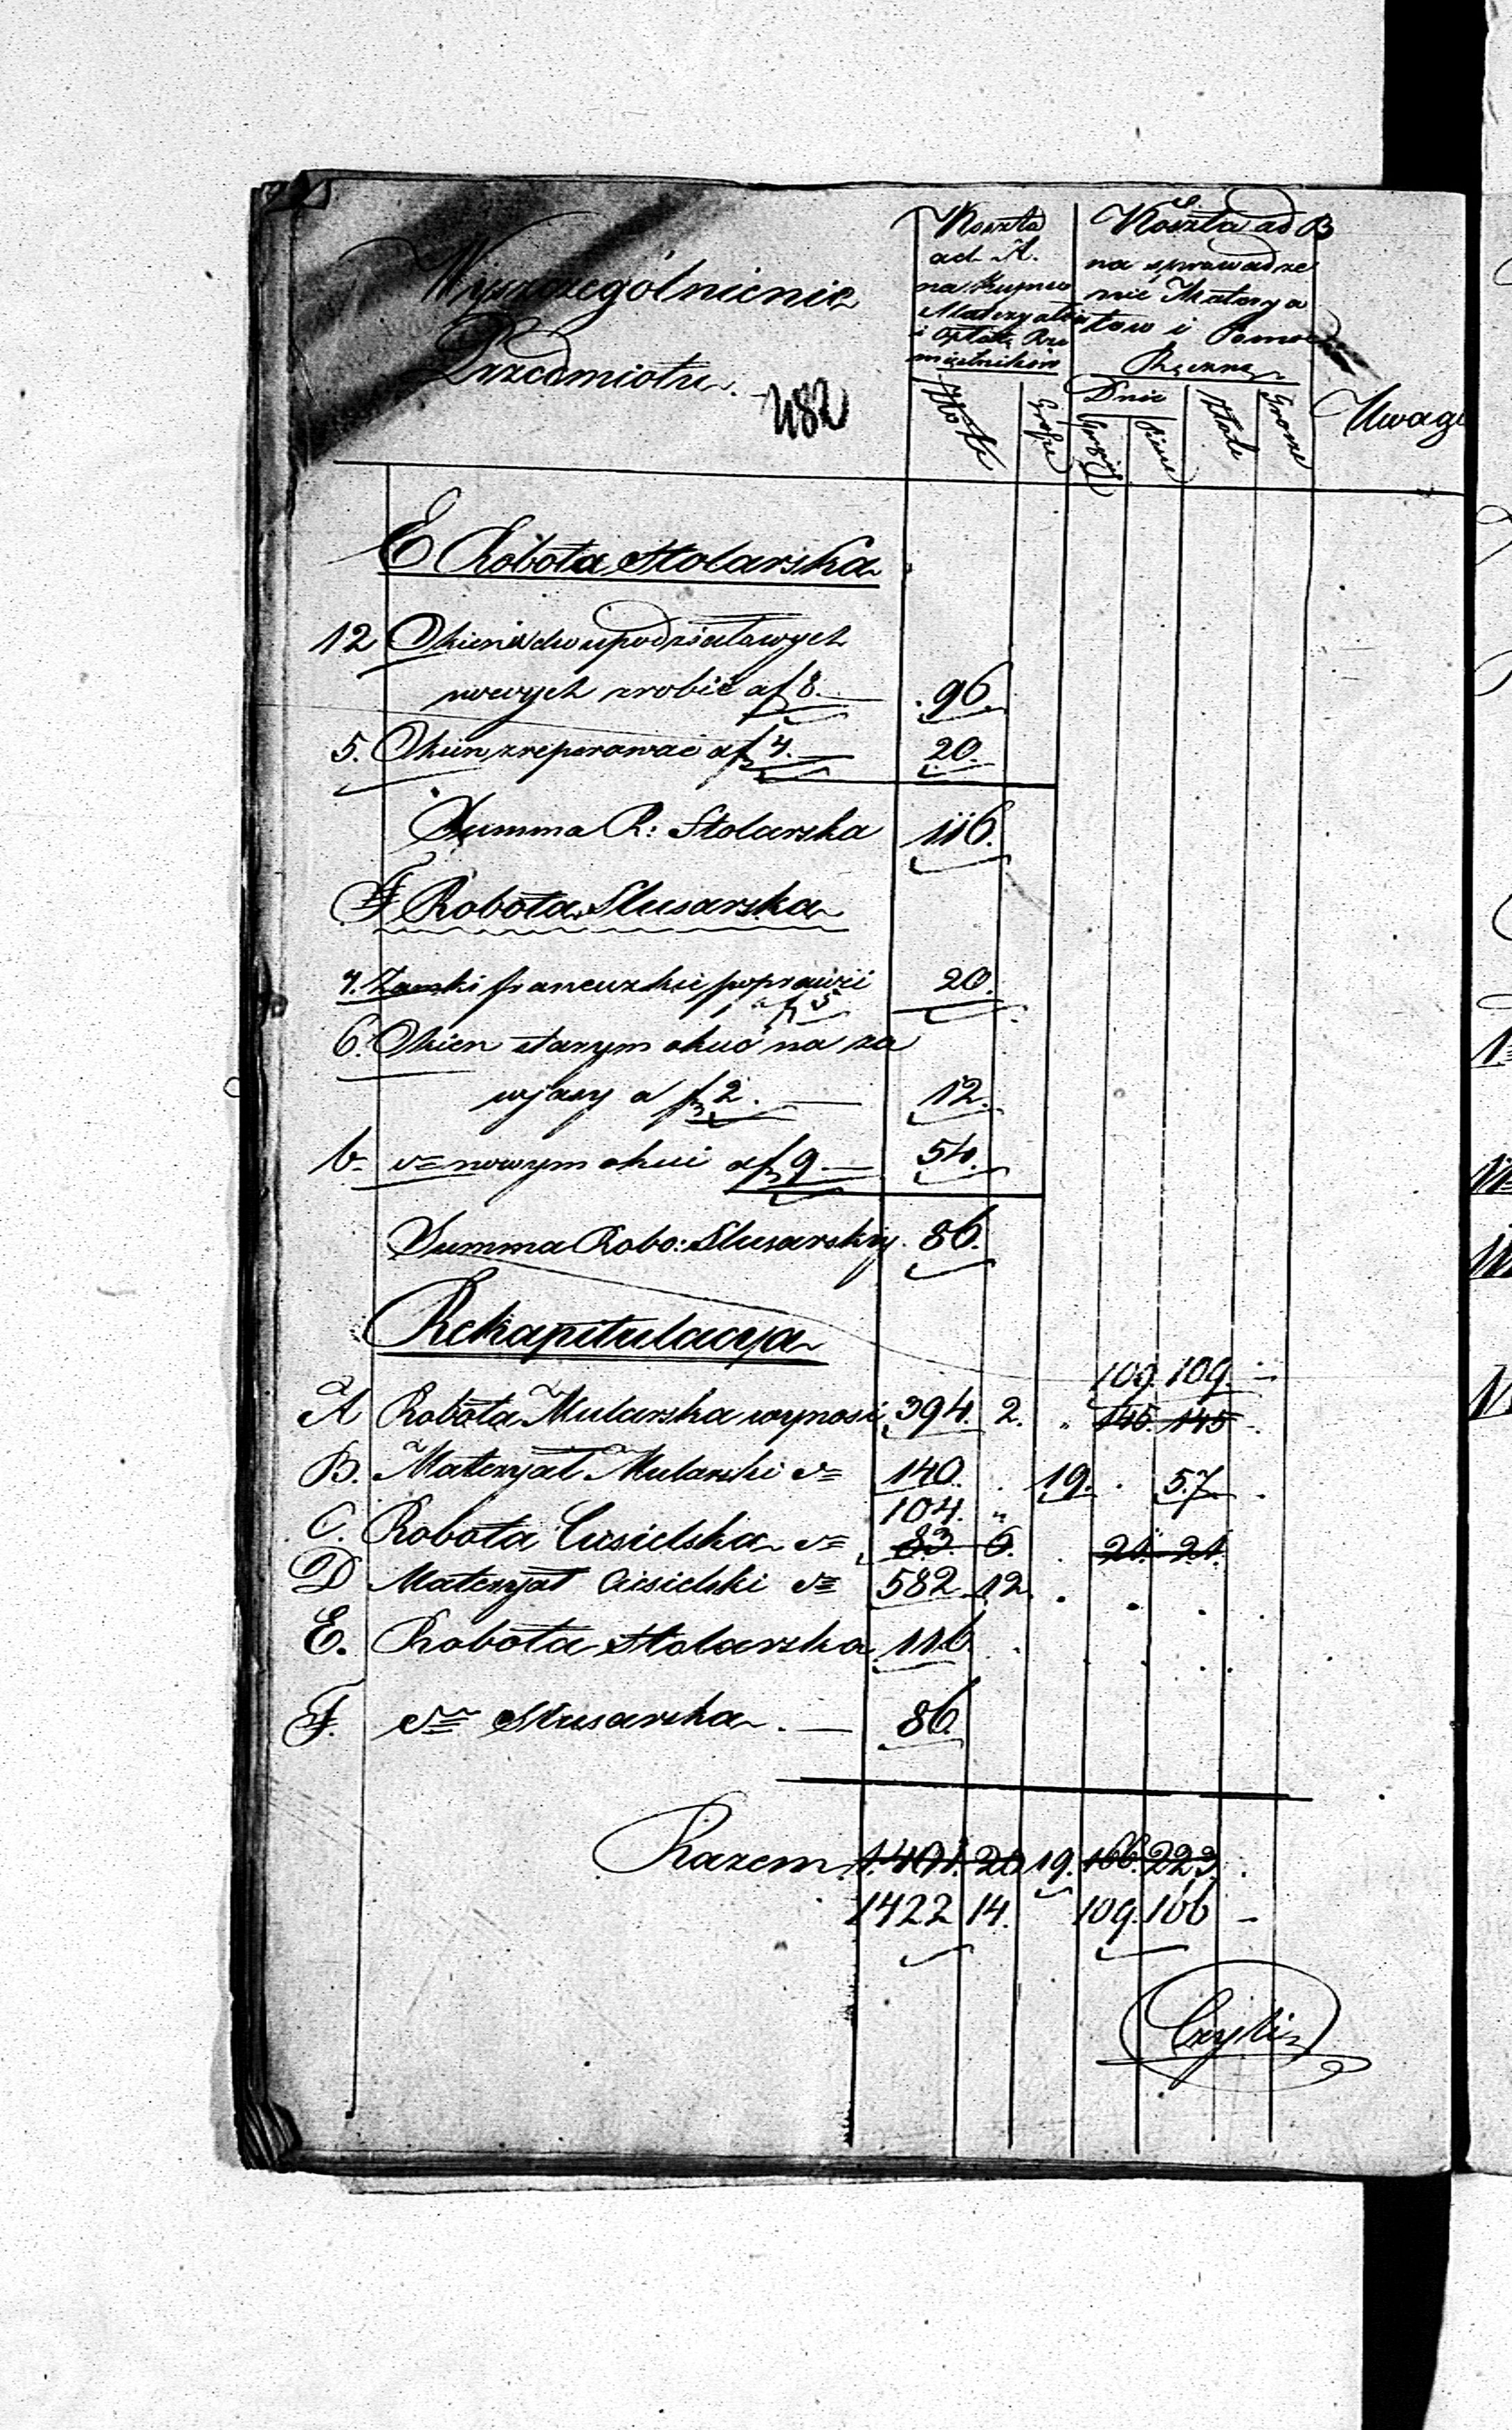 Wyszczególnienie
Przedmiotu.
482
Koszta
ad A.
na Kupno
Materyałów
i Opłatę Rze
mieślników
Złote
Grosze
Koszta ad B
na sprowadze
nie Materya
łów i Pomoc
Ręczną
Dnie
Piesze
Złote
Grosze
Uwagi
E Robota Stolarska
12 Okien dwupodziałowych
nowych zrobić a f 8. — 96.
5. Okien zreperować a f 4. — 20.
Summa R: Stolarska 116.
F Robota Slusarska
4. Zamki francuzkie poprawić 20.
a f 5
6. Okien starym okuć na za
wjasy a f 2. — 12.
6 d= nowym okuć a f 9 — 54.
Summa Robo: Slusarskiy. 86.
Rekapitulacya
109. 109. —
A Robota Mularska wynosi 394. 2. " 145. 145 -
B. Materyał Mularski d= 140. . 19. . 57. .
104. "
C. Robota Ciesielska d= 83. 6. . 21. 21.
D Materyał Ciesielski d= 582 12. . . . .
E. Robota Stolarska 116. . . . . .
F. d= Slusarska. — 86
Razem 1.401. 20 19. 166. 223. .
1422 14. 109. 166 -